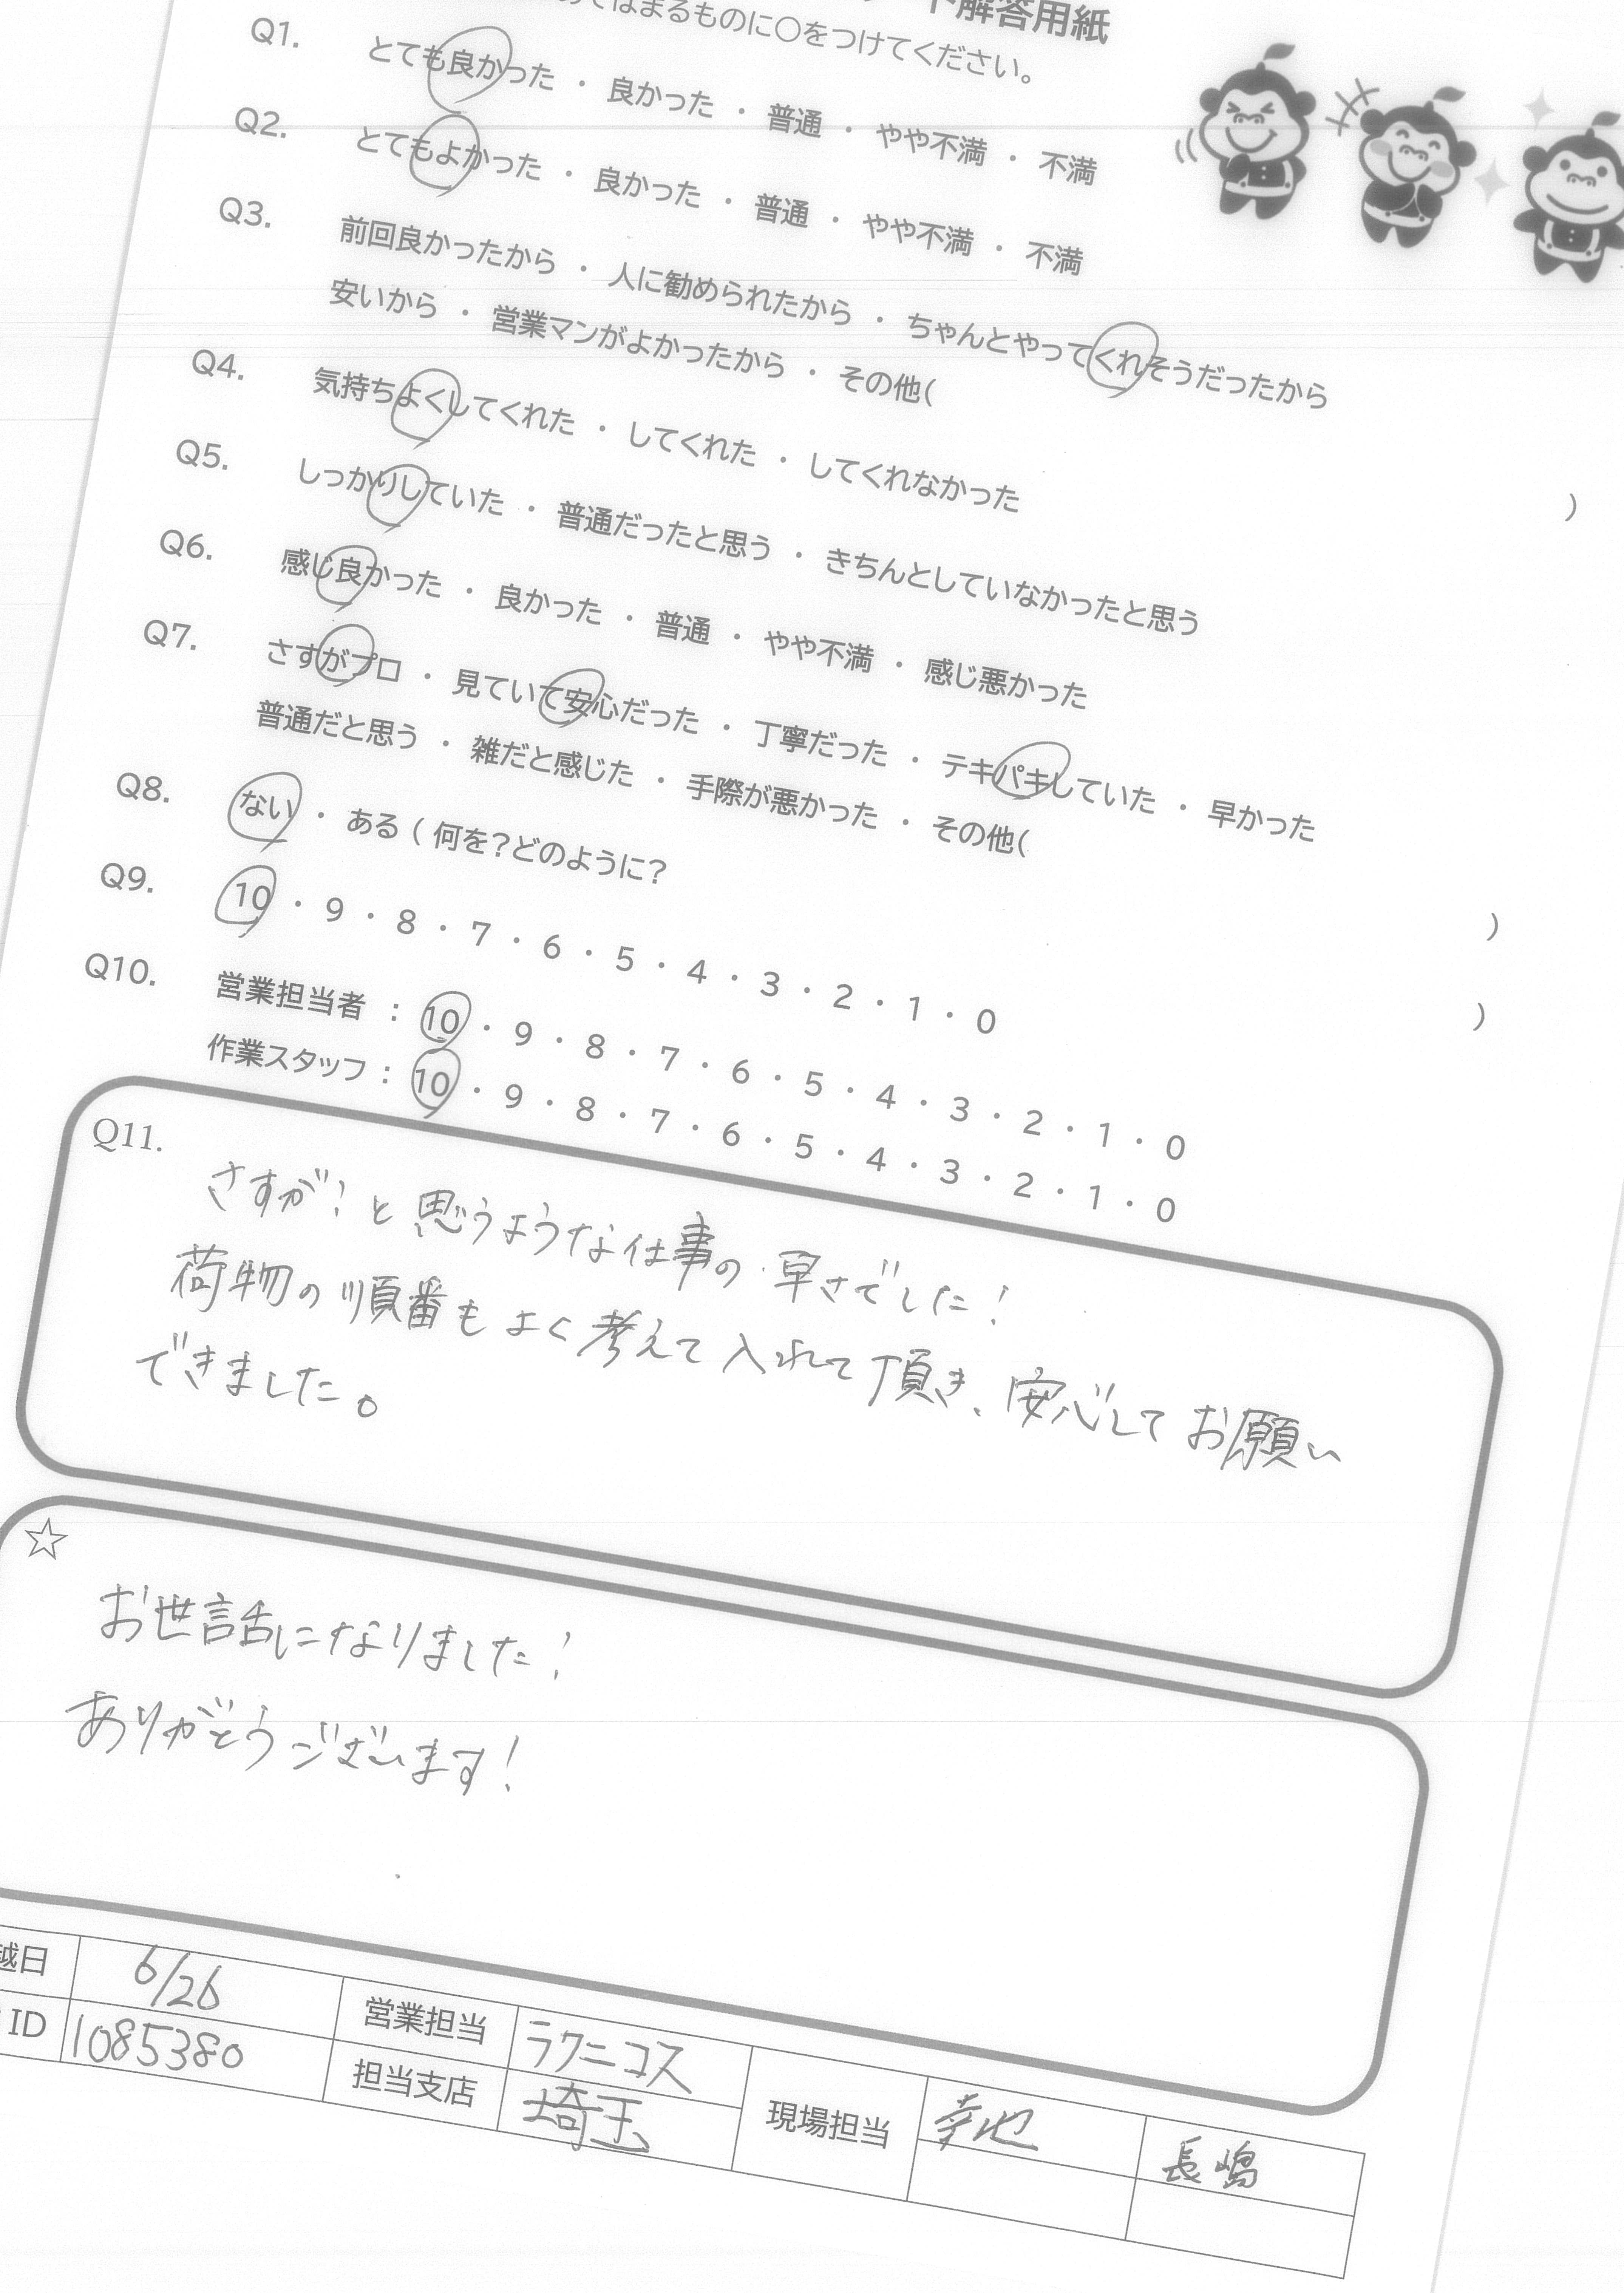 ト解答用紙
はまるものに○をつけてください。
Q1. とても良かった ・ 良かった ・ 普通 ・ やや不満 ・ 不満
Q2. とてもよかった ・ 良かった ・ 普通 ・ やや不満 ・ 不満
Q3. 前回良かったから ・ 人に勧められたから ・ ちゃんとやってくれそうだったから
安いから ・ 営業マンがよかったから ・ その他( )
Q4. 気持ちよくしてくれた ・ してくれた ・ してくれなかった
Q5. しっかりしていた ・ 普通だったと思う ・ きちんとしていなかったと思う
Q6. 感じ良かった ・ 良かった ・ 普通 ・ やや不満 ・ 感じ悪かった
Q7. さすがプロ ・ 見ていて安心だった ・ 丁寧だった ・ テキパキしていた ・ 早かった
普通だと思う ・ 雑だと感じた ・ 手際が悪かった ・ その他( )
Q8. ない ・ ある ( 何を?どのように? )
Q9. 10 ・ 9 ・ 8 ・ 7 ・ 6 ・ 5 ・ 4 ・ 3 ・ 2 ・ 1 ・ 0
Q10. 営業担当者 : 10 ・ 9 ・ 8 ・ 7 ・ 6 ・ 5 ・ 4 ・ 3 ・ 2 ・ 1 ・ 0
作業スタッフ : 10 ・ 9 ・ 8 ・ 7 ・ 6 ・ 5 ・ 4 ・ 3 ・ 2 ・ 1 ・ 0
Q11.
さすが!と思うような仕事の早さでした!
荷物の順番もよく考えて入れて頂き、安心してお願い
できました。
☆
お世話になりました!
ありがとうございます!
越日 6/26 営業担当 ラクニコス 現場担当 幸地 長嶋
ID 1085380 担当支店 埼玉